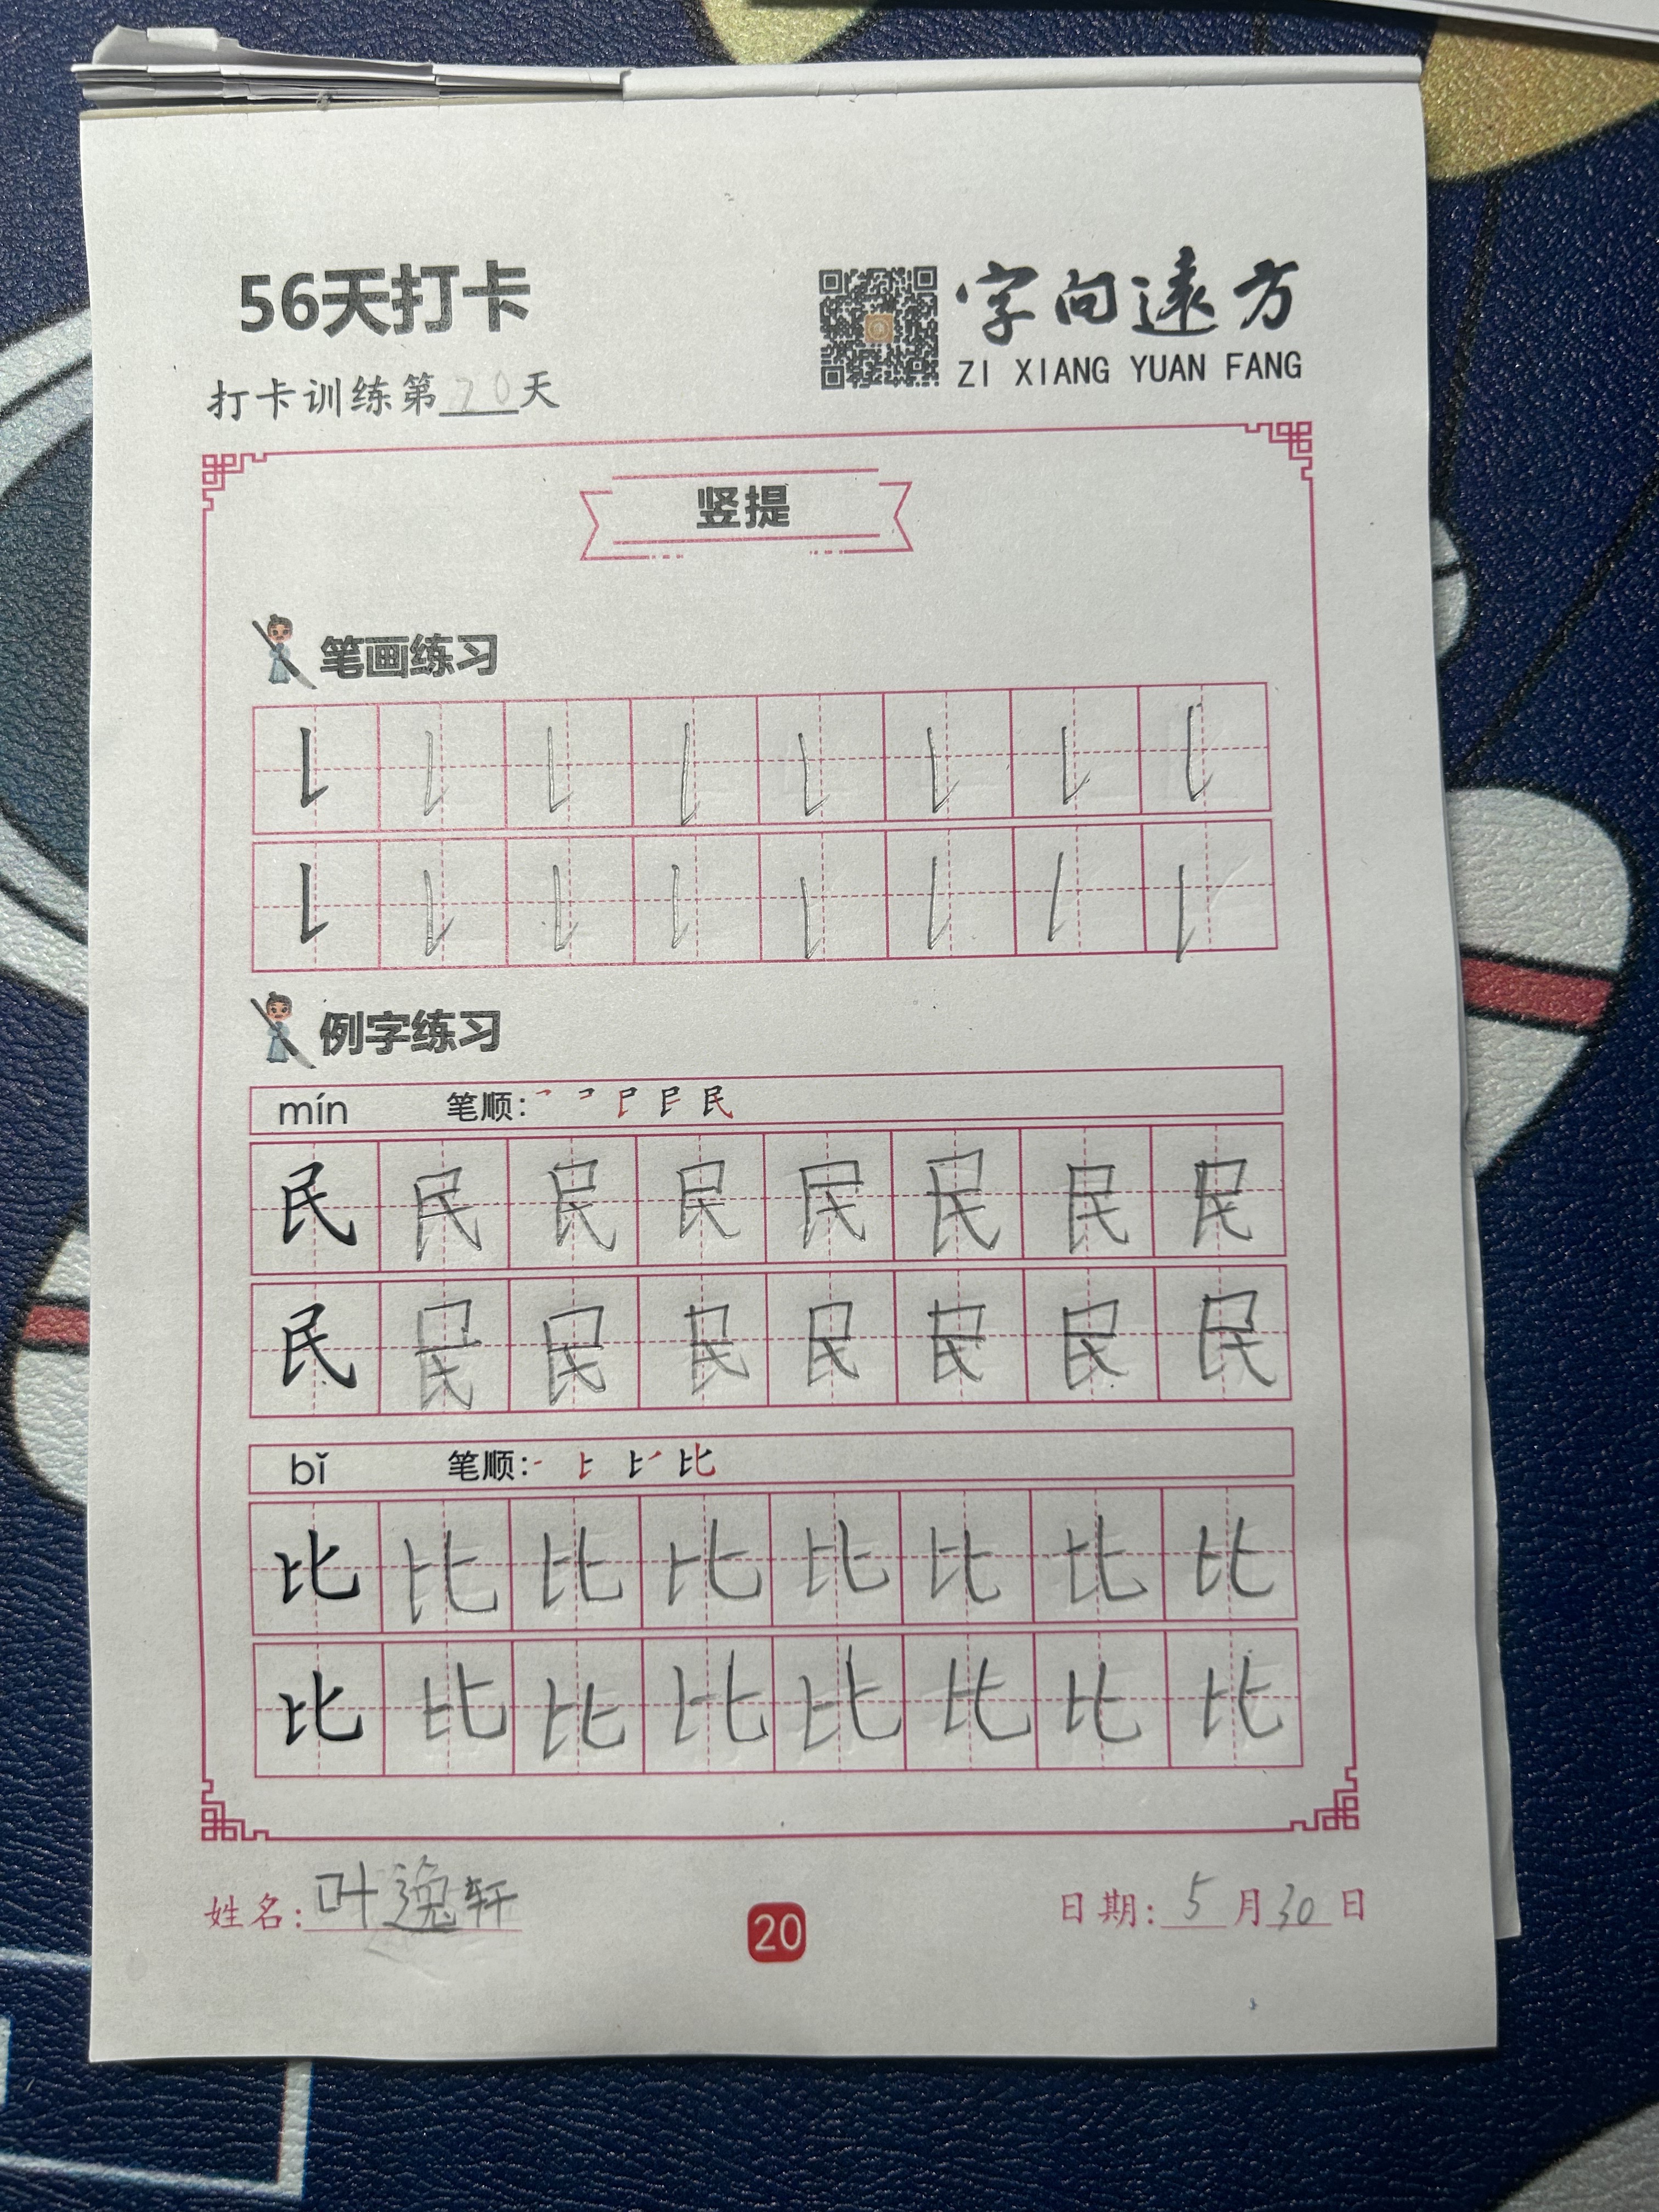 56天打卡
字向遠方
ZI XIANG YUAN FANG
打卡训练第20天
竖提
笔画练习
例字练习
mín 笔顺: 民
民 民 民 民 民 民 民 民
民 民 民 民 民 民 民 民
bǐ 笔顺: 比
比 比 比 比 比 比 比 比
比 比 比 比 比 比 比 比
姓名: 叶逸轩
20
日期: 5月30日